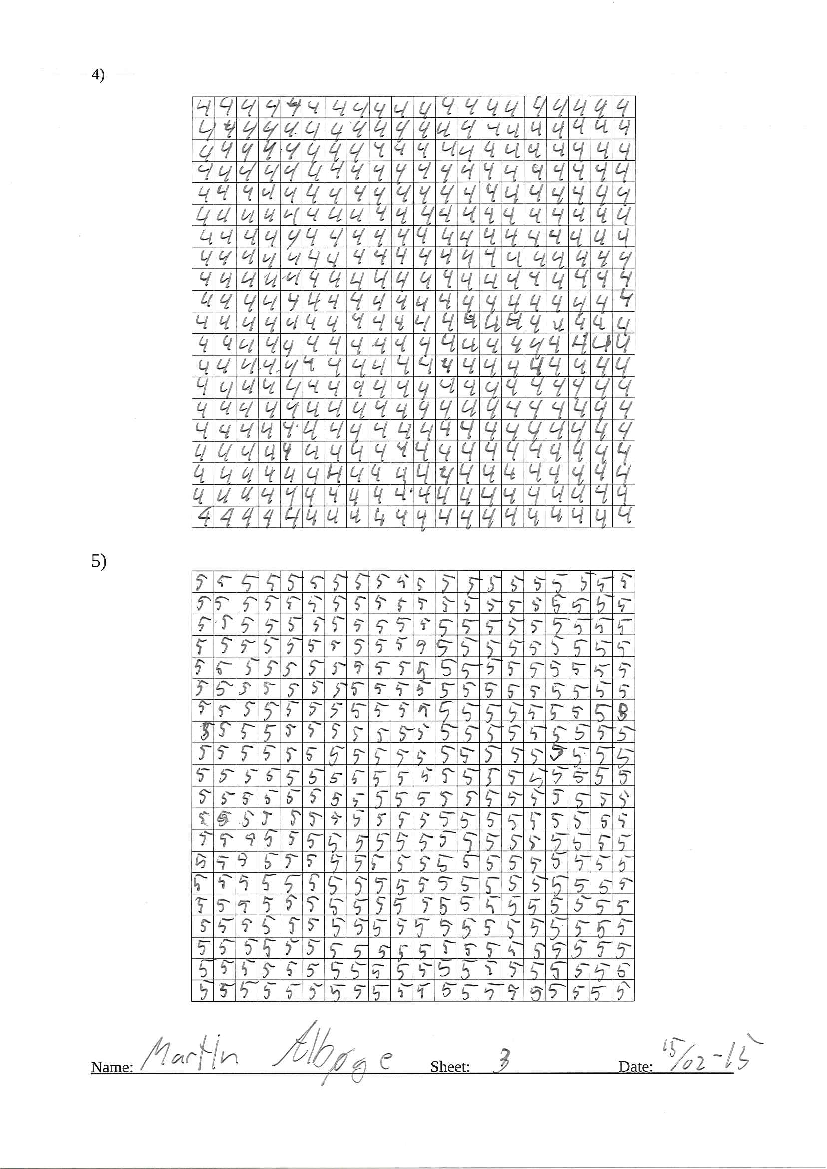 4)
4 4 4 4 4 4 4 4 4 4 4 4 4 4 4 4 4 4 4 4
4 4 4 4 4 4 4 4 4 4 4 4 4 4 4 4 4 4 4 4
4 4 4 4 4 4 4 4 4 4 4 4 4 4 4 4 4 4 4 4
4 4 4 4 4 4 4 4 4 4 4 4 4 4 4 4 4 4 4 4
4 4 4 4 4 4 4 4 4 4 4 4 4 4 4 4 4 4 4 4
4 4 4 4 4 4 4 4 4 4 4 4 4 4 4 4 4 4 4 4
4 4 4 4 4 4 4 4 4 4 4 4 4 4 4 4 4 4 4 4
4 4 4 4 4 4 4 4 4 4 4 4 4 4 4 4 4 4 4 4
4 4 4 4 4 4 4 4 4 4 4 4 4 4 4 4 4 4 4 4
4 4 4 4 4 4 4 4 4 4 4 4 4 4 4 4 4 4 4 4
4 4 4 4 4 4 4 4 4 4 4 4 4 4 4 4 4 4 4 4
4 4 4 4 4 4 4 4 4 4 4 4 4 4 4 4 4 4 4 4
4 4 4 4 4 4 4 4 4 4 4 4 4 4 4 4 4 4 4 4
4 4 4 4 4 4 4 4 4 4 4 4 4 4 4 4 4 4 4 4
4 4 4 4 4 4 4 4 4 4 4 4 4 4 4 4 4 4 4 4
4 4 4 4 4 4 4 4 4 4 4 4 4 4 4 4 4 4 4 4
4 4 4 4 4 4 4 4 4 4 4 4 4 4 4 4 4 4 4 4
4 4 4 4 4 4 4 4 4 4 4 4 4 4 4 4 4 4 4 4
4 4 4 4 4 4 4 4 4 4 4 4 4 4 4 4 4 4 4 4
4 4 4 4 4 4 4 4 4 4 4 4 4 4 4 4 4 4 4 4
5)
5 5 5 5 5 5 5 5 5 5 5 5 5 5 5 5 5 5 5 5
5 5 5 5 5 5 5 5 5 5 5 5 5 5 5 5 5 5 5 5
5 5 5 5 5 5 5 5 5 5 5 5 5 5 5 5 5 5 5 5
5 5 5 5 5 5 5 5 5 5 5 5 5 5 5 5 5 5 5 5
5 5 5 5 5 5 5 5 5 5 5 5 5 5 5 5 5 5 5 5
5 5 5 5 5 5 5 5 5 5 5 5 5 5 5 5 5 5 5 5
5 5 5 5 5 5 5 5 5 5 5 5 5 5 5 5 5 5 5 5
5 5 5 5 5 5 5 5 5 5 5 5 5 5 5 5 5 5 5 5
5 5 5 5 5 5 5 5 5 5 5 5 5 5 5 5 5 5 5 5
5 5 5 5 5 5 5 5 5 5 5 5 5 5 5 5 5 5 5 5
5 5 5 5 5 5 5 5 5 5 5 5 5 5 5 5 5 5 5 5
5 5 5 5 5 5 5 5 5 5 5 5 5 5 5 5 5 5 5 5
5 5 5 5 5 5 5 5 5 5 5 5 5 5 5 5 5 5 5 5
5 5 5 5 5 5 5 5 5 5 5 5 5 5 5 5 5 5 5 5
5 5 5 5 5 5 5 5 5 5 5 5 5 5 5 5 5 5 5 5
5 5 5 5 5 5 5 5 5 5 5 5 5 5 5 5 5 5 5 5
5 5 5 5 5 5 5 5 5 5 5 5 5 5 5 5 5 5 5 5
5 5 5 5 5 5 5 5 5 5 5 5 5 5 5 5 5 5 5 5
5 5 5 5 5 5 5 5 5 5 5 5 5 5 5 5 5 5 5 5
5 5 5 5 5 5 5 5 5 5 5 5 5 5 5 5 5 5 5 5
Name: Martin Albøge Sheet: 3 Date: 15/02-15